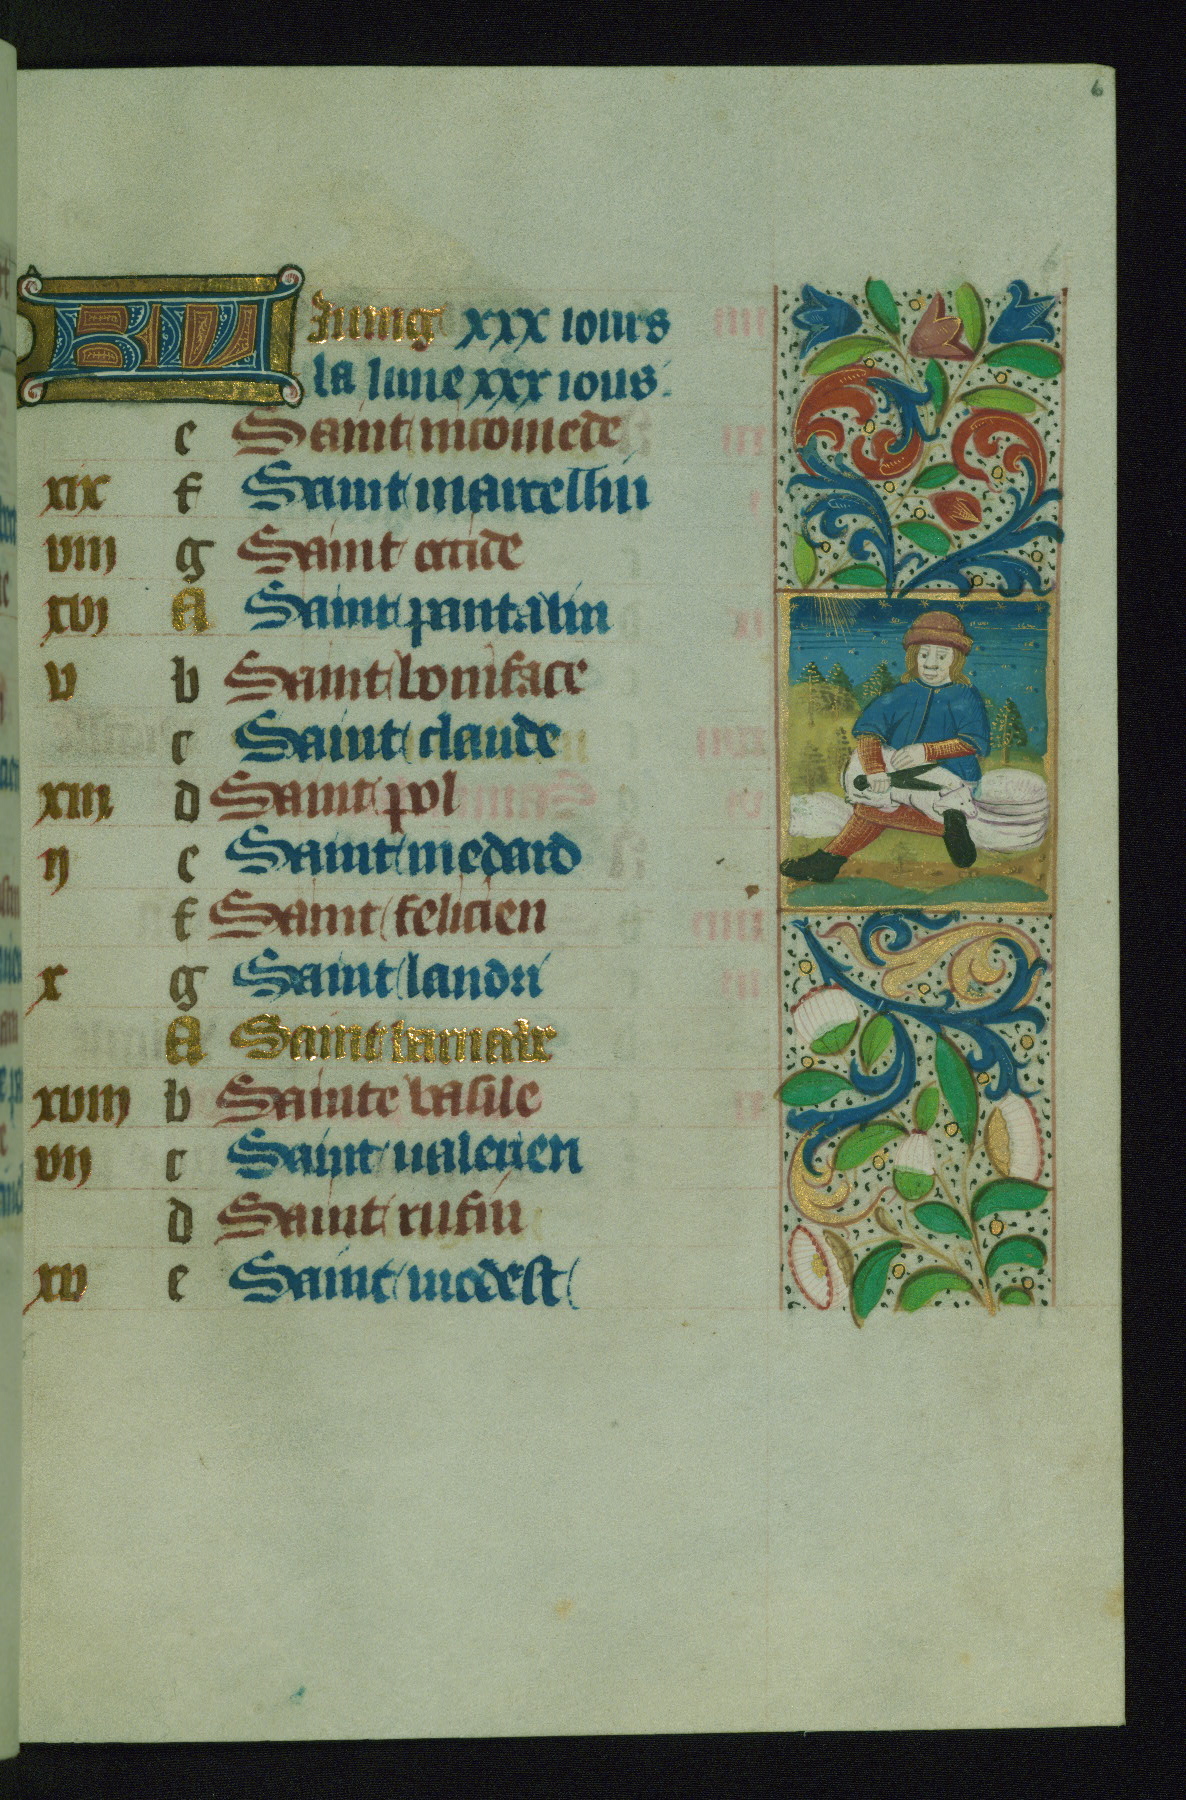 6
KL Juing xxx iours
la lune xxx iours.
e Saint nicomede
xix f Saint marcellin
viii g Saint
xvi A Saint pantalin
v b Saint boniface
c Saint claude
xiii d Saint pol
ii e Saint medard
f Saint felicien
x g Saint landri
A Saint barnabe
xviii b Sainte basile
vii c Saint ualerien
d Saint rufin
xv e Saint modest